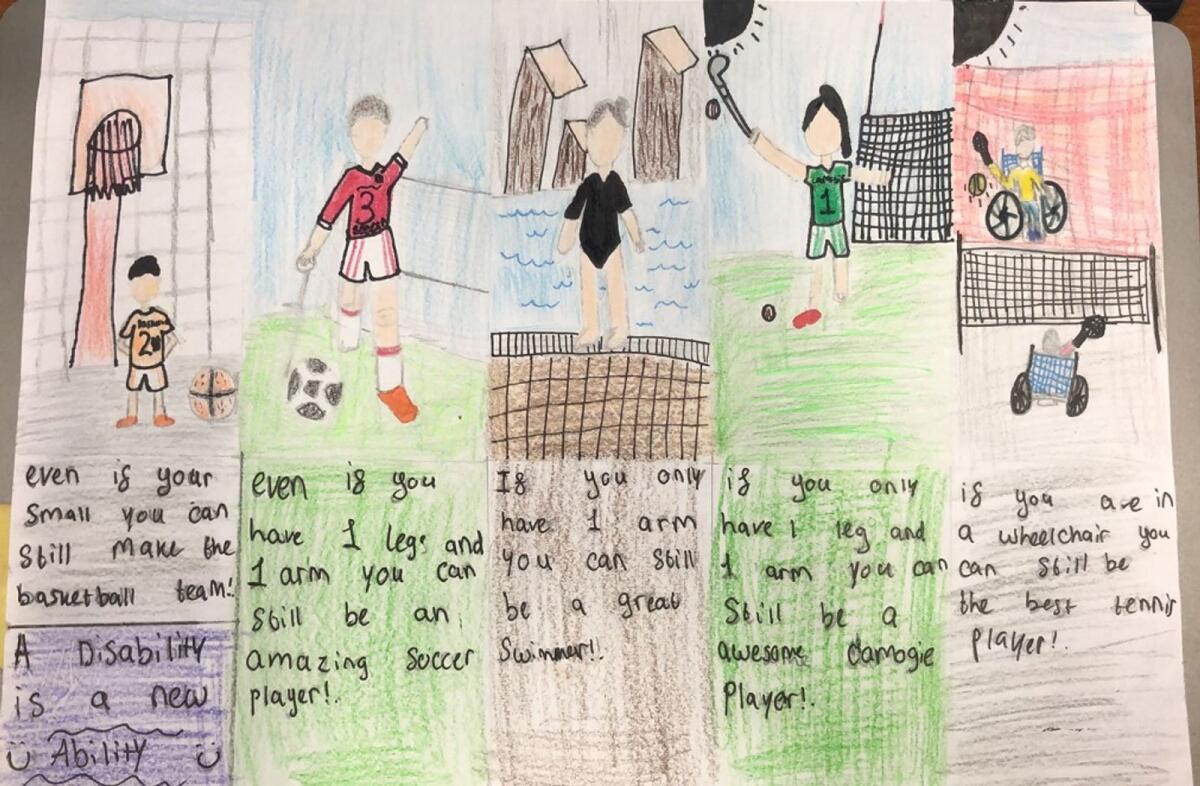 2
3
1
even if your
small you can
still make the
basketball team!
A Disability
is a new
Ability
even if you
have 1 legs and
1 arm you can
still be an
amazing soccer
player!
If you only
have 1 arm
you can still
be a great
Swimmer!
if you only
have 1 leg and
1 arm you can
still be a
awesome camogie
Player!
if you are in
a wheelchair you
can still be
the best tennis
player!